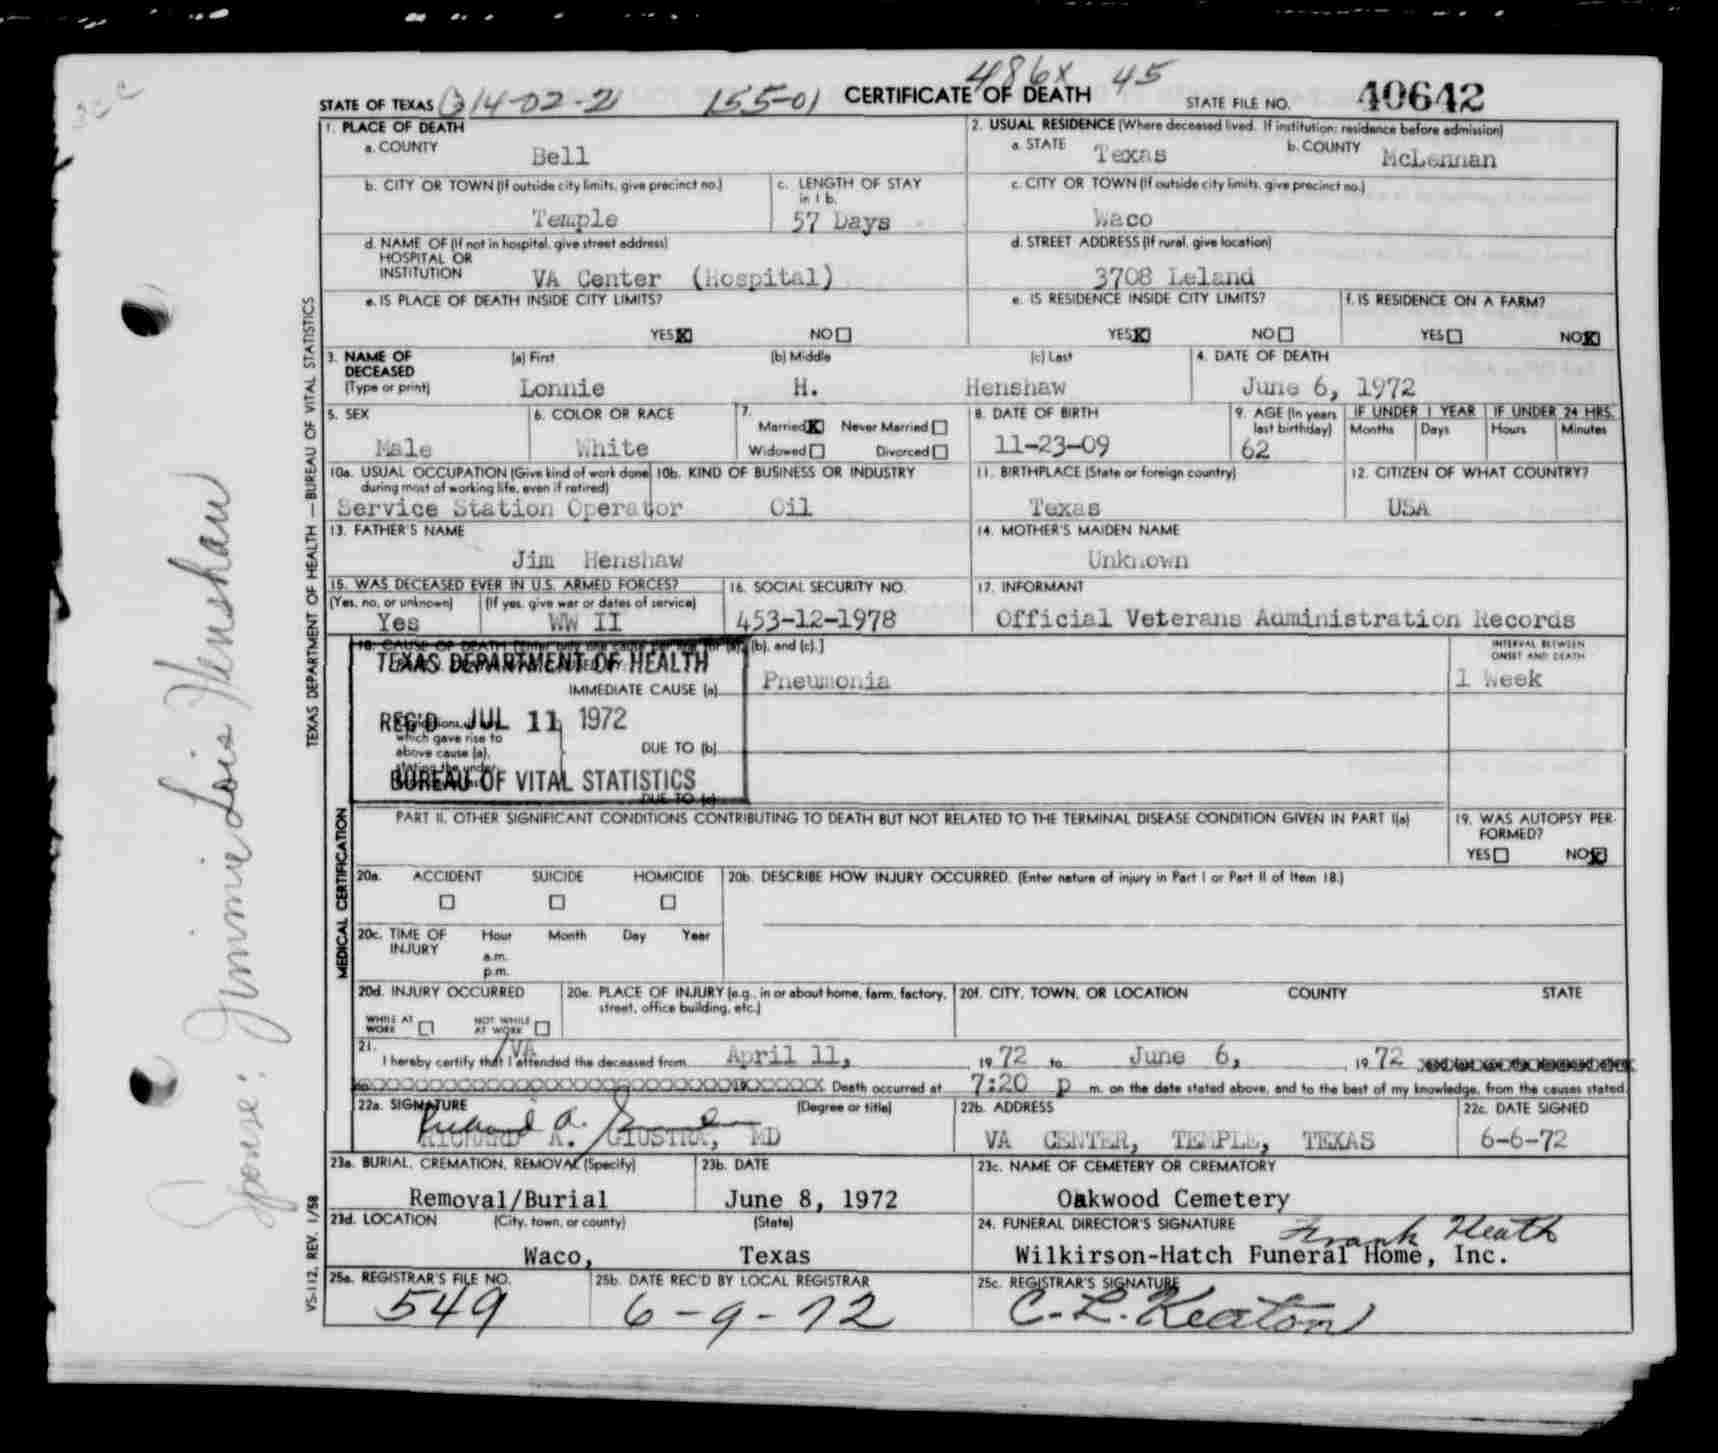 486x 45
STATE OF TEXAS 314-02-2 155-01 CERTIFICATE OF DEATH STATE FILE NO. 40642
1. PLACE OF DEATH
a. COUNTY Bell
2. USUAL RESIDENCE (Where deceased lived. If institution: residence before admission)
a. STATE Texas b. COUNTY McLennan
b. CITY OR TOWN (If outside city limits, give precinct no.) Temple
c. LENGTH OF STAY in 1 b. 57 Days
c. CITY OR TOWN (If outside city limits, give precinct no.) Waco
d. NAME OF (If not in hospital, give street address) HOSPITAL OR INSTITUTION VA Center (Hospital)
d. STREET ADDRESS (If rural, give location) 3708 Leland
e. IS PLACE OF DEATH INSIDE CITY LIMITS? YES X NO
e. IS RESIDENCE INSIDE CITY LIMITS? YES X NO
f. IS RESIDENCE ON A FARM? YES NO X
3. NAME OF DECEASED (Type or print) (a) First (b) Middle (c) Last
Lonnie H. Henshaw
4. DATE OF DEATH June 6, 1972
5. SEX Male
6. COLOR OR RACE White
7. Married X Never Married Widowed Divorced
8. DATE OF BIRTH 11-23-09
9. AGE (In years last birthday) 62
IF UNDER 1 YEAR Months Days
IF UNDER 24 HRS. Hours Minutes
10a. USUAL OCCUPATION (Give kind of work done during most of working life, even if retired) Service Station Operator
10b. KIND OF BUSINESS OR INDUSTRY Oil
11. BIRTHPLACE (State or foreign country) Texas
12. CITIZEN OF WHAT COUNTRY? USA
13. FATHER'S NAME Jim Henshaw
14. MOTHER'S MAIDEN NAME Unknown
15. WAS DECEASED EVER IN U.S. ARMED FORCES?
(Yes, no, or unknown) Yes (If yes, give war or dates of service) WW II
16. SOCIAL SECURITY NO. 453-12-1978
17. INFORMANT Official Veterans Administration Records
18. CAUSE OF DEATH (b), and (c).]
INTERVAL BETWEEN ONSET AND DEATH
TEXAS DEPARTMENT OF HEALTH
REC'D JUL 11 1972
BUREAU OF VITAL STATISTICS
IMMEDIATE CAUSE (a) Pneumonia 1 Week
which gave rise to above cause (a), stating the under-
DUE TO (b)
DUE TO (c)
PART II. OTHER SIGNIFICANT CONDITIONS CONTRIBUTING TO DEATH BUT NOT RELATED TO THE TERMINAL DISEASE CONDITION GIVEN IN PART I(a)
19. WAS AUTOPSY PERFORMED? YES NO X
20a. ACCIDENT SUICIDE HOMICIDE
20b. DESCRIBE HOW INJURY OCCURRED. (Enter nature of injury in Part I or Part II of Item 18.)
20c. TIME OF INJURY Hour Month Day Year a.m. p.m.
20d. INJURY OCCURRED WHILE AT WORK NOT WHILE AT WORK
20e. PLACE OF INJURY (e.g., in or about home, farm, factory, street, office building, etc.)
20f. CITY, TOWN, OR LOCATION COUNTY STATE
21. I hereby certify that I /VA attended the deceased from April 11, 1972 to June 6, 1972
Death occurred at 7:20 p m. on the date stated above, and to the best of my knowledge, from the causes stated.
22a. SIGNATURE (Degree or title)
RICHARD A. GIUSTRA, MD
22b. ADDRESS VA CENTER, TEMPLE, TEXAS
22c. DATE SIGNED 6-6-72
23a. BURIAL, CREMATION, REMOVAL (Specify) Removal/Burial
23b. DATE June 8, 1972
23c. NAME OF CEMETERY OR CREMATORY Oakwood Cemetery
23d. LOCATION (City, town, or county) (State) Waco, Texas
24. FUNERAL DIRECTOR'S SIGNATURE Frank Heath
Wilkirson-Hatch Funeral Home, Inc.
25a. REGISTRAR'S FILE NO. 549
25b. DATE REC'D BY LOCAL REGISTRAR 6-9-72
25c. REGISTRAR'S SIGNATURE C. L. Keaton
TEXAS DEPARTMENT OF HEALTH — BUREAU OF VITAL STATISTICS
MEDICAL CERTIFICATION
VS-112, REV. 1/58
Spouse: Jimmie Lois Henshaw